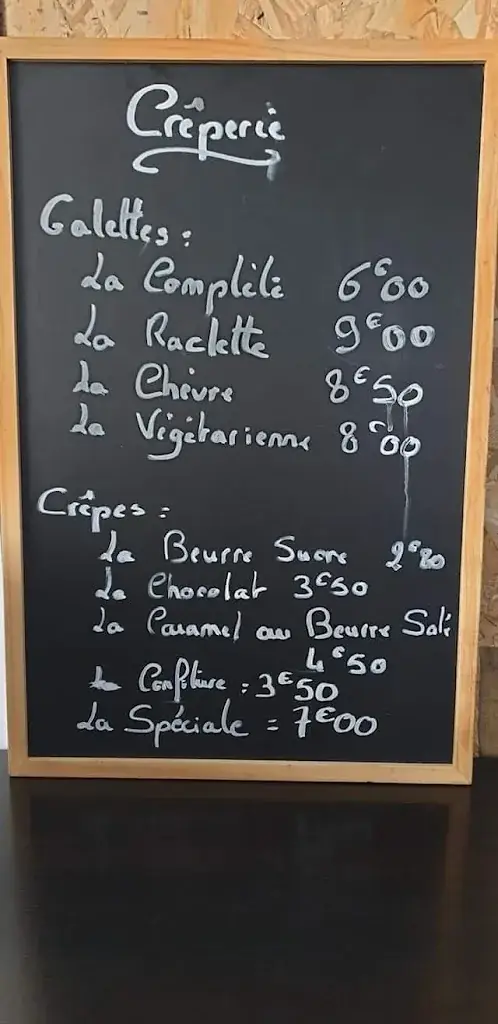 Crêperie
Galettes :
La Complète 6€00
La Raclette 9€00
La Chèvre 8€50
La Végétarienne 8€00
Crêpes :
La Beurre Sucre 2€80
La Chocolat 3€50
La Caramel au Beurre Salé
4€50
La Confiture : 3€50
La Spéciale = 7€00